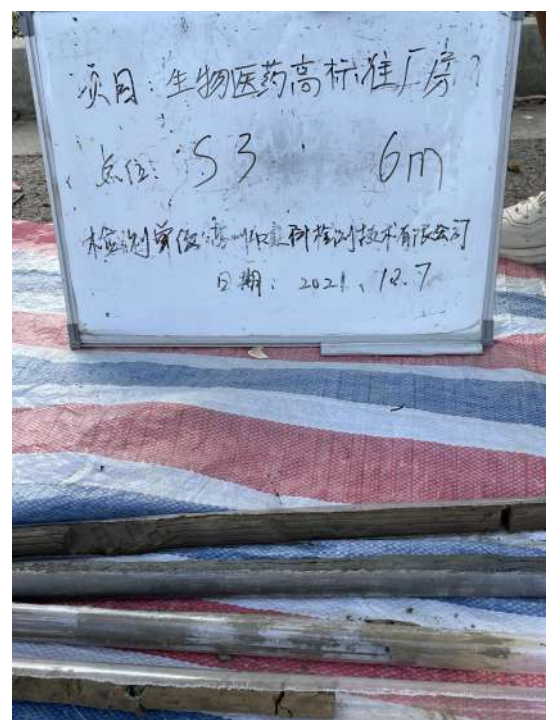 项目：生物医药高标准厂房
点位：S3 6m
检测单位：科检测技术有限公司
日期：2021、12.7